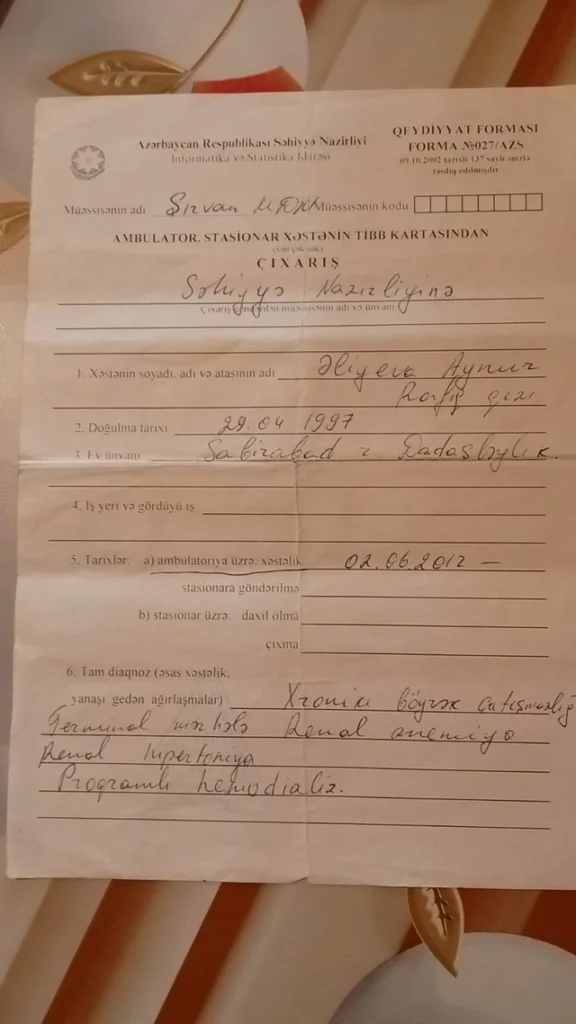 Azərbaycan Respublikası Səhiyyə Nazirliyi
İnformatika və Statistika İdarəsi
QEYDİYYAT FORMASI
FORMA №027/AZS
09.10.2002 tarixli 137 saylı əmrlə
təsdiq edilmişdir
Müəssisənin adı Şirvan Müəssisənin kodu
AMBULATOR, STASİONAR XƏSTƏNİN TİBB KARTASINDAN
ÇIXARIŞ
Səhiyyə Nazirliyinə
Çıxarış göndərilən müəssisənin adı və ünvanı
1. Xəstənin soyadı, adı və atasının adı Əliyeva Aynur
Rafiq qızı
2. Doğulma tarixi 29.04.1997
3. Ev ünvanı Sabirabad r. Dadaşbəylik.
4. İş yeri və gördüyü iş
5. Tarixlər: a) ambulatoriya üzrə: xəstəlik 02.06.2012 —
stasionara göndərilmə
b) stasionar üzrə: daxil olma
çıxma
6. Tam diaqnoz (əsas xəstəlik,
yanaşı gedən ağırlaşmalar) Xroniki böyrək çatışmazlığ
Terminal mərhələ Renal anemiya
Renal hipertoniya
Programlı hemodializ.